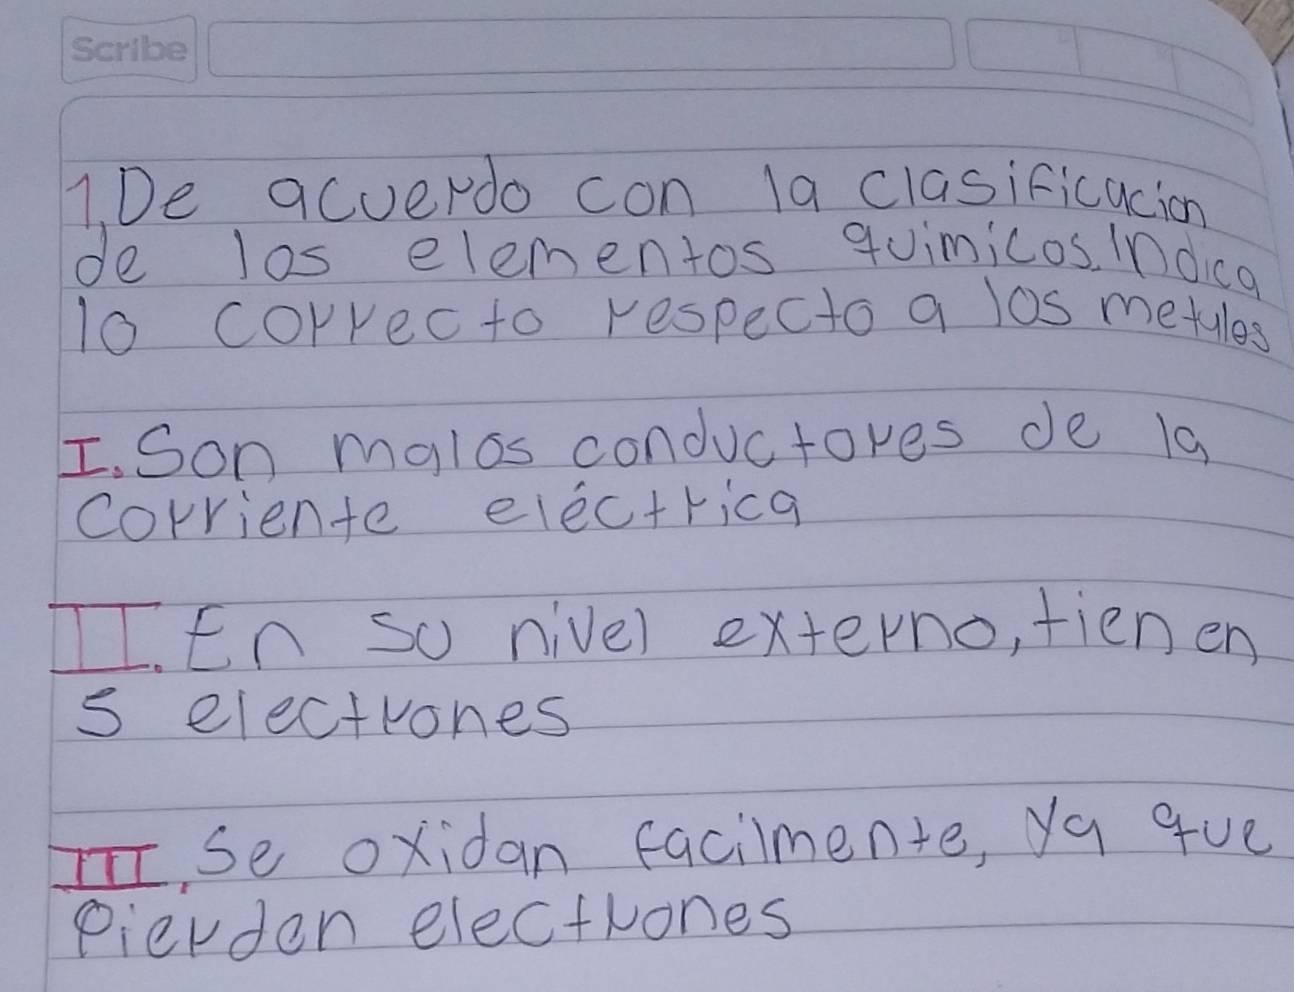 Scribe
1. De acuerdo con la clasificacion
de los elementos quimicos. Indica
lo correcto respecto a los metales
I. Son malos conductores de la
corriente eléctrica
II. En su nivel externo, tienen
5 electrones
III. Se oxidan facilmente, ya que
Pierden electrones